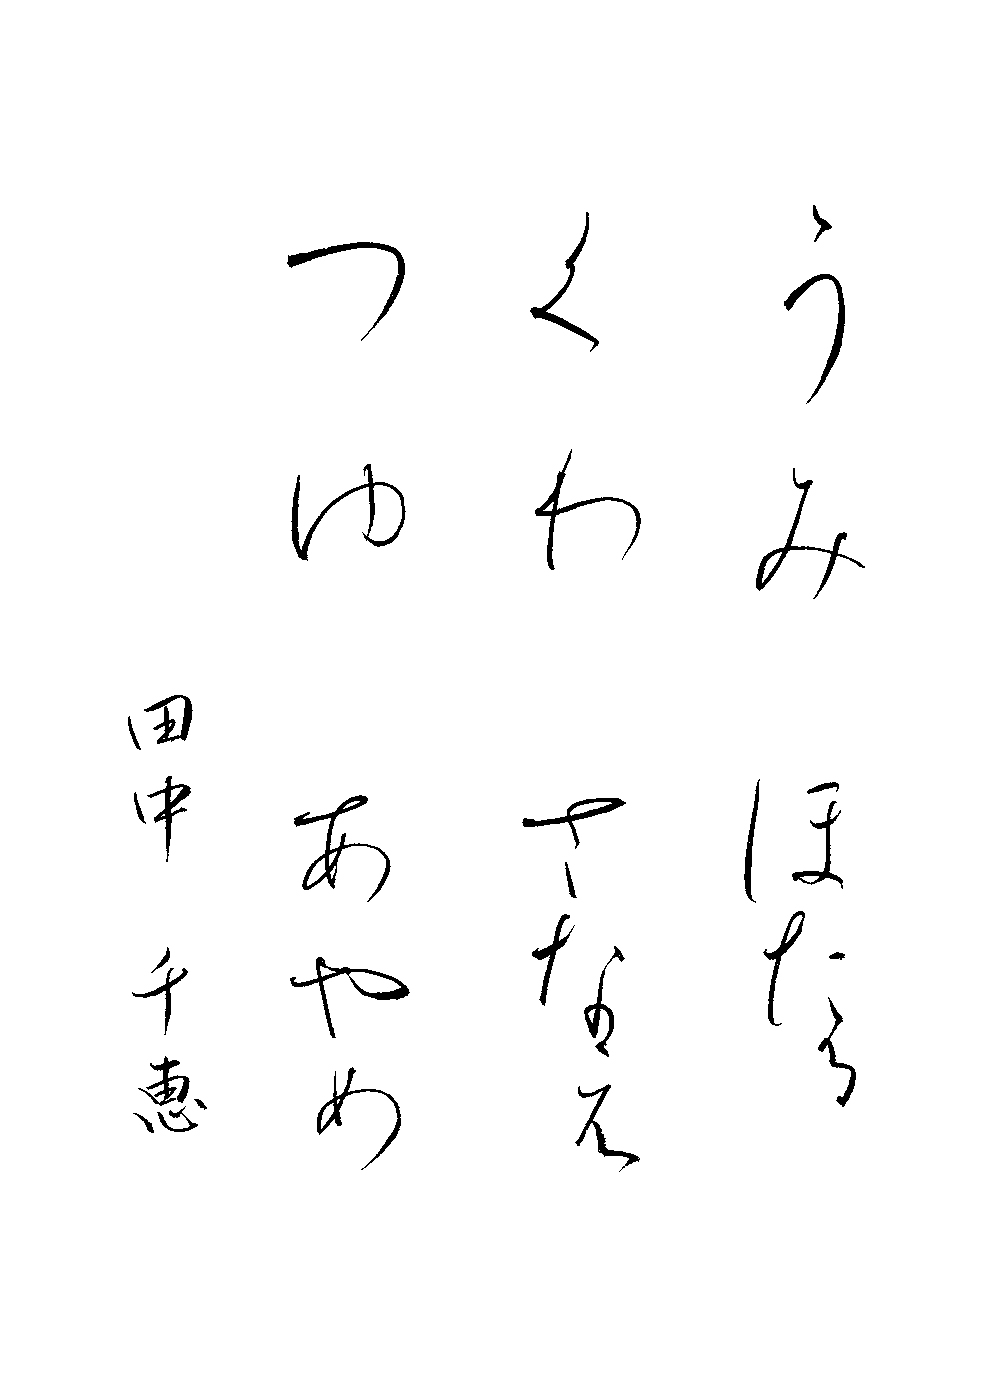 うみ ほたる
くわ さなえ
つゆ あやめ
田中 千恵